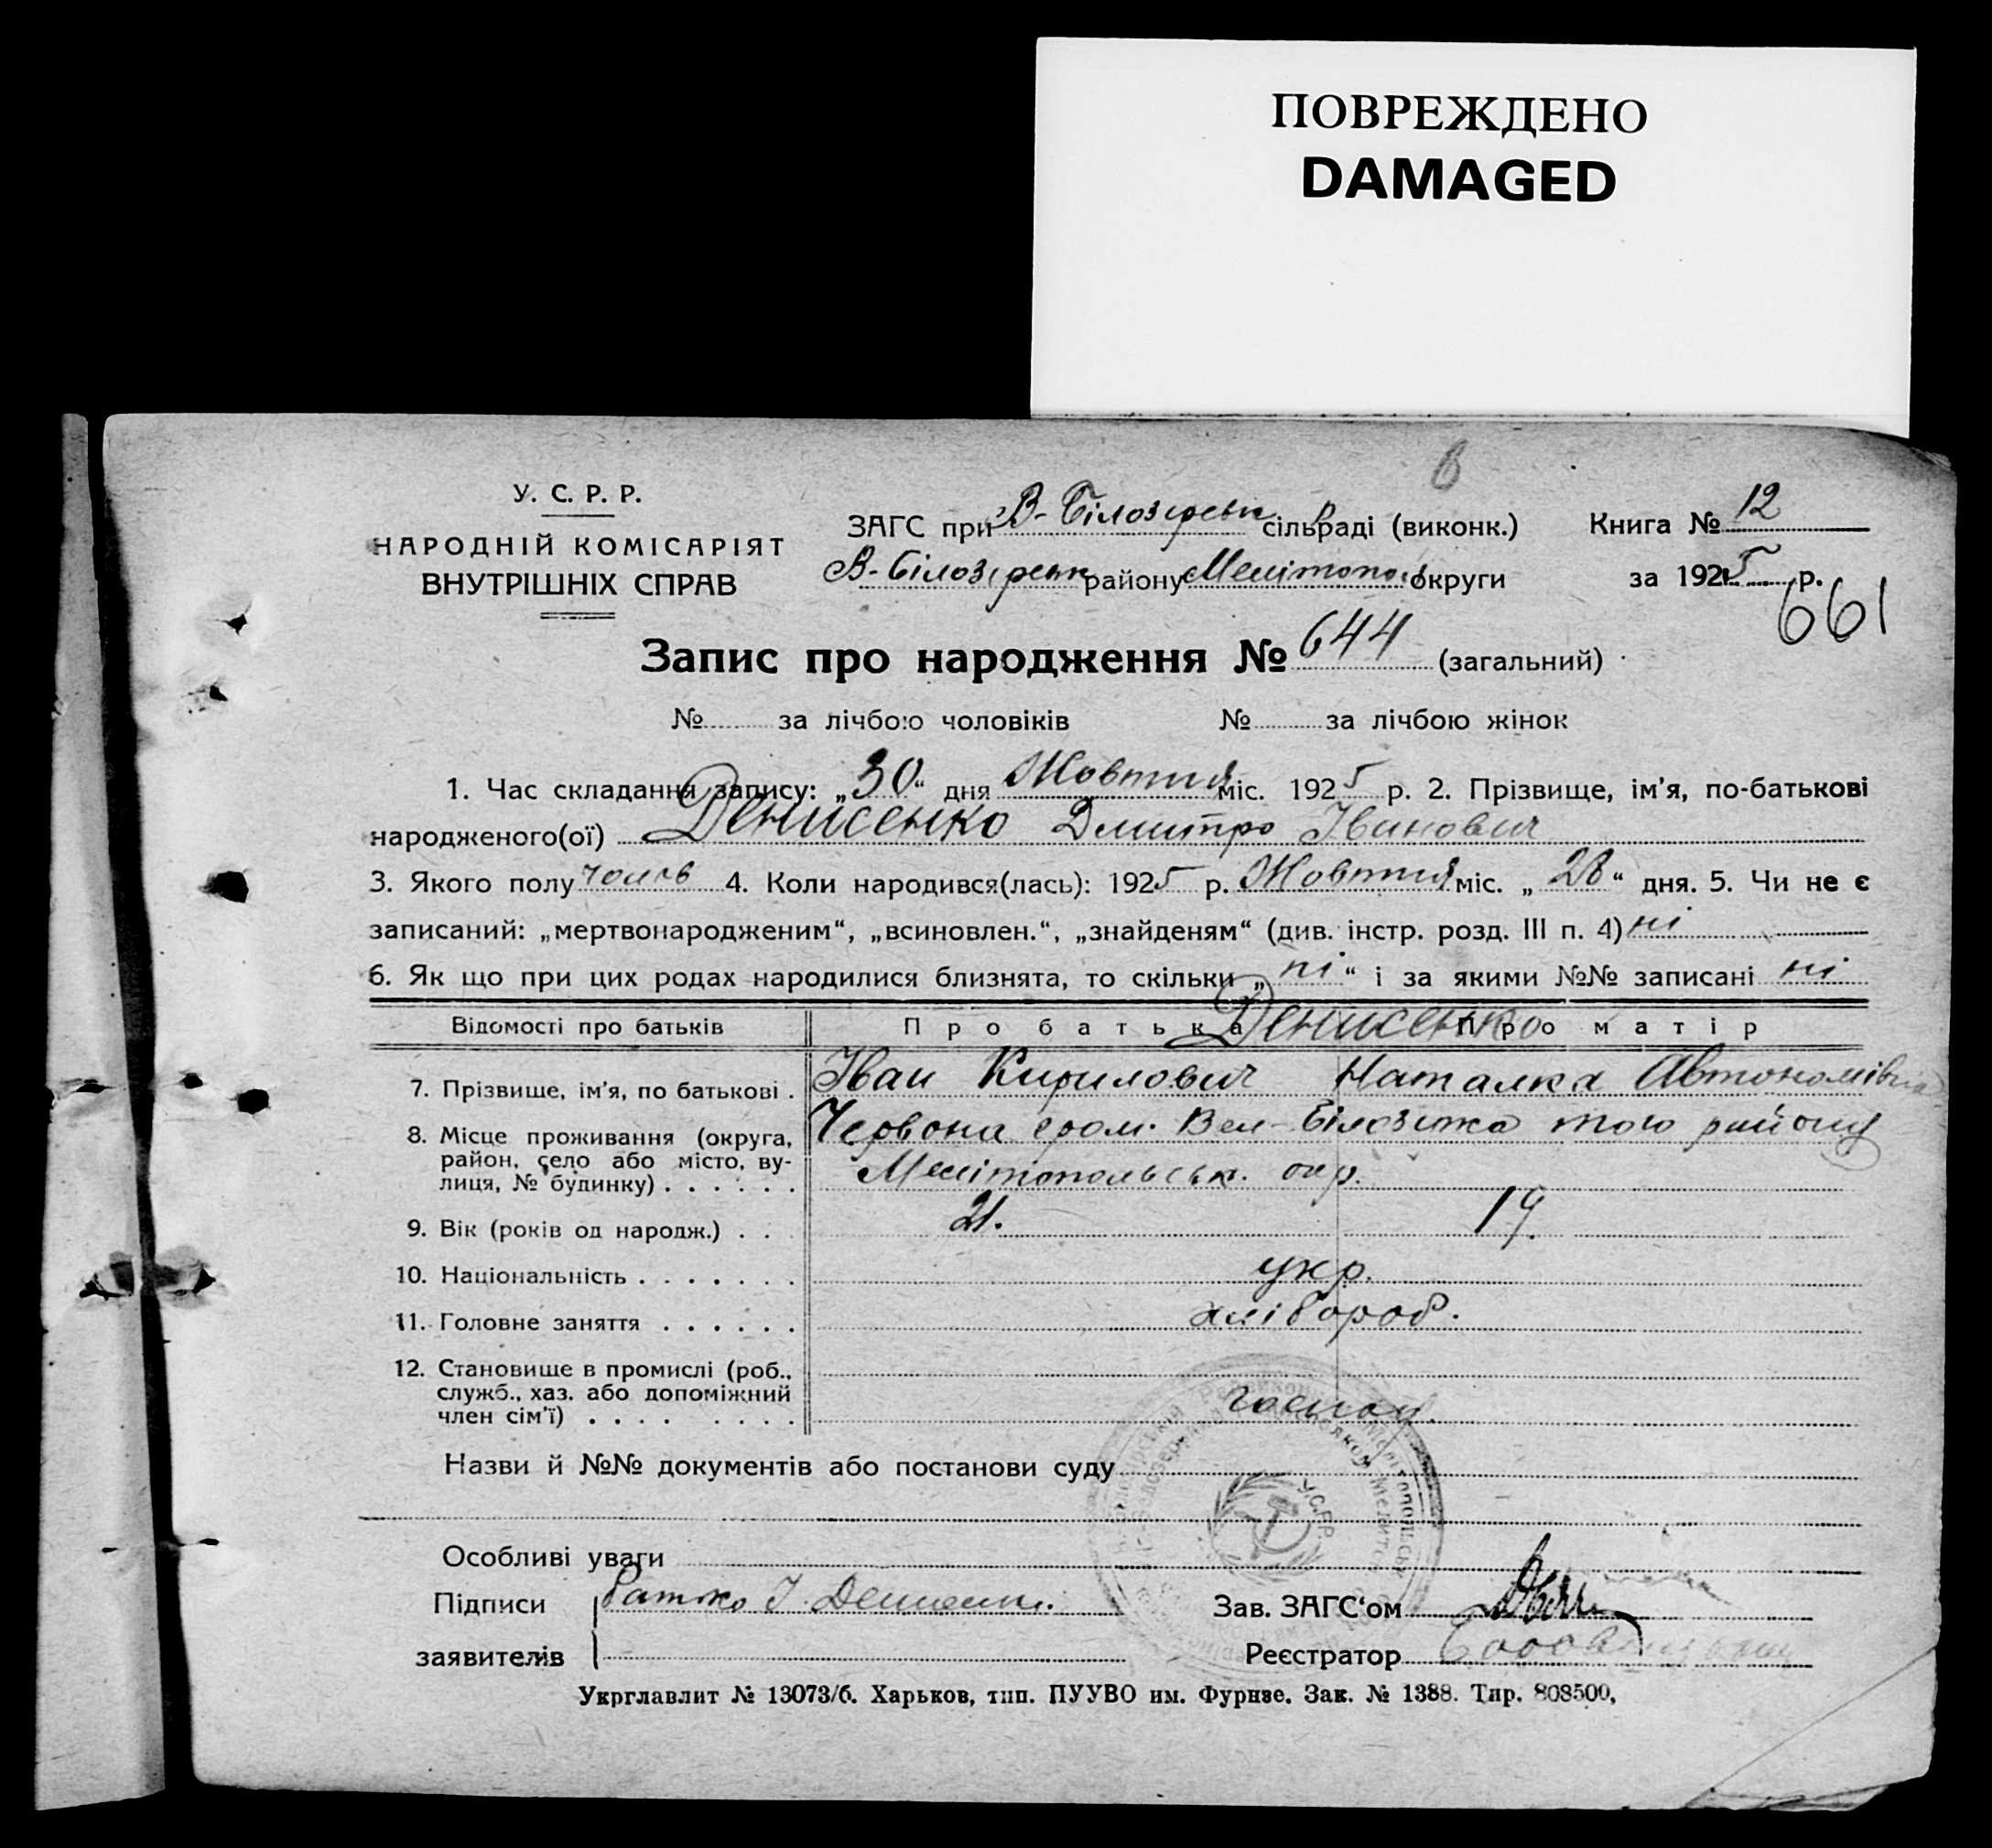 ПОВРЕЖДЕНО
DAMAGED
У. С. Р. Р.
НАРОДНІЙ КОМІСАРІЯТ
ВНУТРІШНІХ СПРАВ
ЗАГС при В-Білозерськ сільраді (виконк.)
В-Білозерськ району Мелітопол округи
Книга № 12
за 1925 р.
661
Запис про народження № 644 (загальний)
№ за лічбою чоловіків № за лічбою жінок
1. Час складання запису: „30“ дня Жовтня міс. 1925 р. 2. Прізвище, ім'я, по-батькові
народженого(ої) Денисенко Дмитро Іванович
3. Якого полу чолов 4. Коли народився(лась): 1925 р. Жовтня міс. „28“ дня. 5. Чи не є
записаний: „мертвонародженим“, „всиновлен.“, „знайденям“ (див. інстр. розд. III п. 4) ні
6. Як що при цих родах народилися близнята, то скільки „ні“ і за якими №№ записані ні
Відомості про батьків Про батька Денисенко Про матір
7. Прізвище, ім'я, по батькові . Іван Кирилович Наталка Автономівна
8. Місце проживання (округа, Червона гром. Вел-Білозірка того району
район, село або місто, ву- Мелітопольськ. окр.
лиця, № будинку) . . . . . .
9. Вік (років од народж.) . . . 21. 19.
10. Національність . . . . . . . укр.
11. Головне заняття . . . . . . хлібороб.
12. Становище в промислі (роб.,
служб., хаз. або допоміжний
член сім'ї) . . . . . . . .
Назви й №№ документів або постанови суду
У.С.Р.Р.
Особливі уваги
Підписи Батько І. Денисенко.
заявителів
Зав. ЗАГС'ом
Реєстратор
Укрглавлит № 13073/б. Харьков, тип. ПУУВО им. Фрунзе. Зак. № 1388. Тир. 808500,